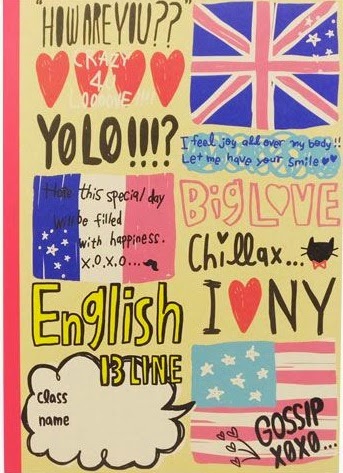 "HOW ARE YOU??"
CRAZY
4
LOOOOVE!!!!
YOLO!!!!?
I feel joy all over my body!!
Let me have your smile
Hope this special day
will be filled
with happiness.
x.o.x.o...
BIG LOVE
Chillax...
I ♥ NY
English
13 LINE
class
name
GOSSIP
XOXO...